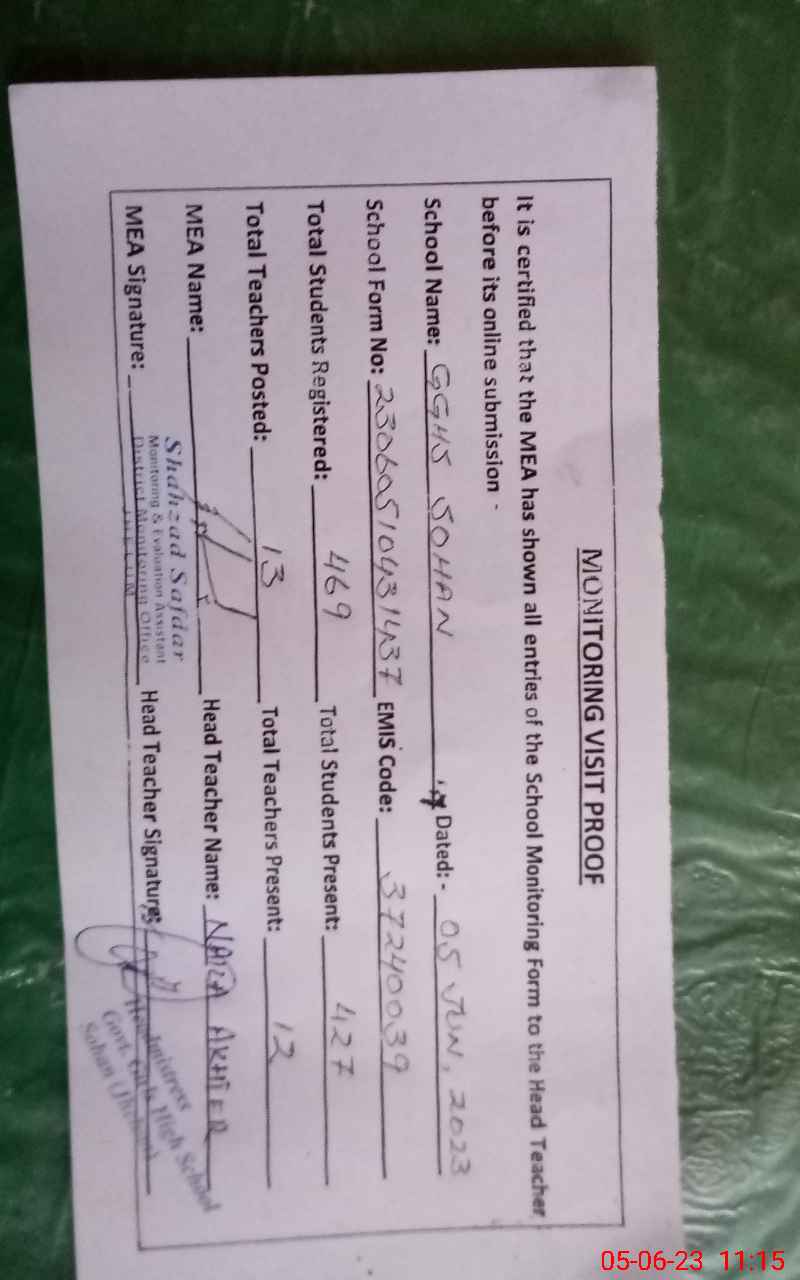 MONITORING VISIT PROOF
It is certified that the MEA has shown all entries of the School Monitoring Form to the Head Teacher
before its online submission -
School Name: GGHS SOHAN Dated: - 05 JUN, 2023
School Form No: 23060510431437 EMIS Code: 37240039
Total Students Registered: 469 Total Students Present: 427
Total Teachers Posted: 13 Total Teachers Present: 12
MEA Name: Head Teacher Name: NAILA AKHTER
Shahzad Safdar
Monitoring & Evaluation Assistant
District Monitoring Office
JHELUM
MEA Signature: Head Teacher Signature:
Headmistress
Govt. Girls High School
Sohan (Jhelum)
05-06-23 11:15